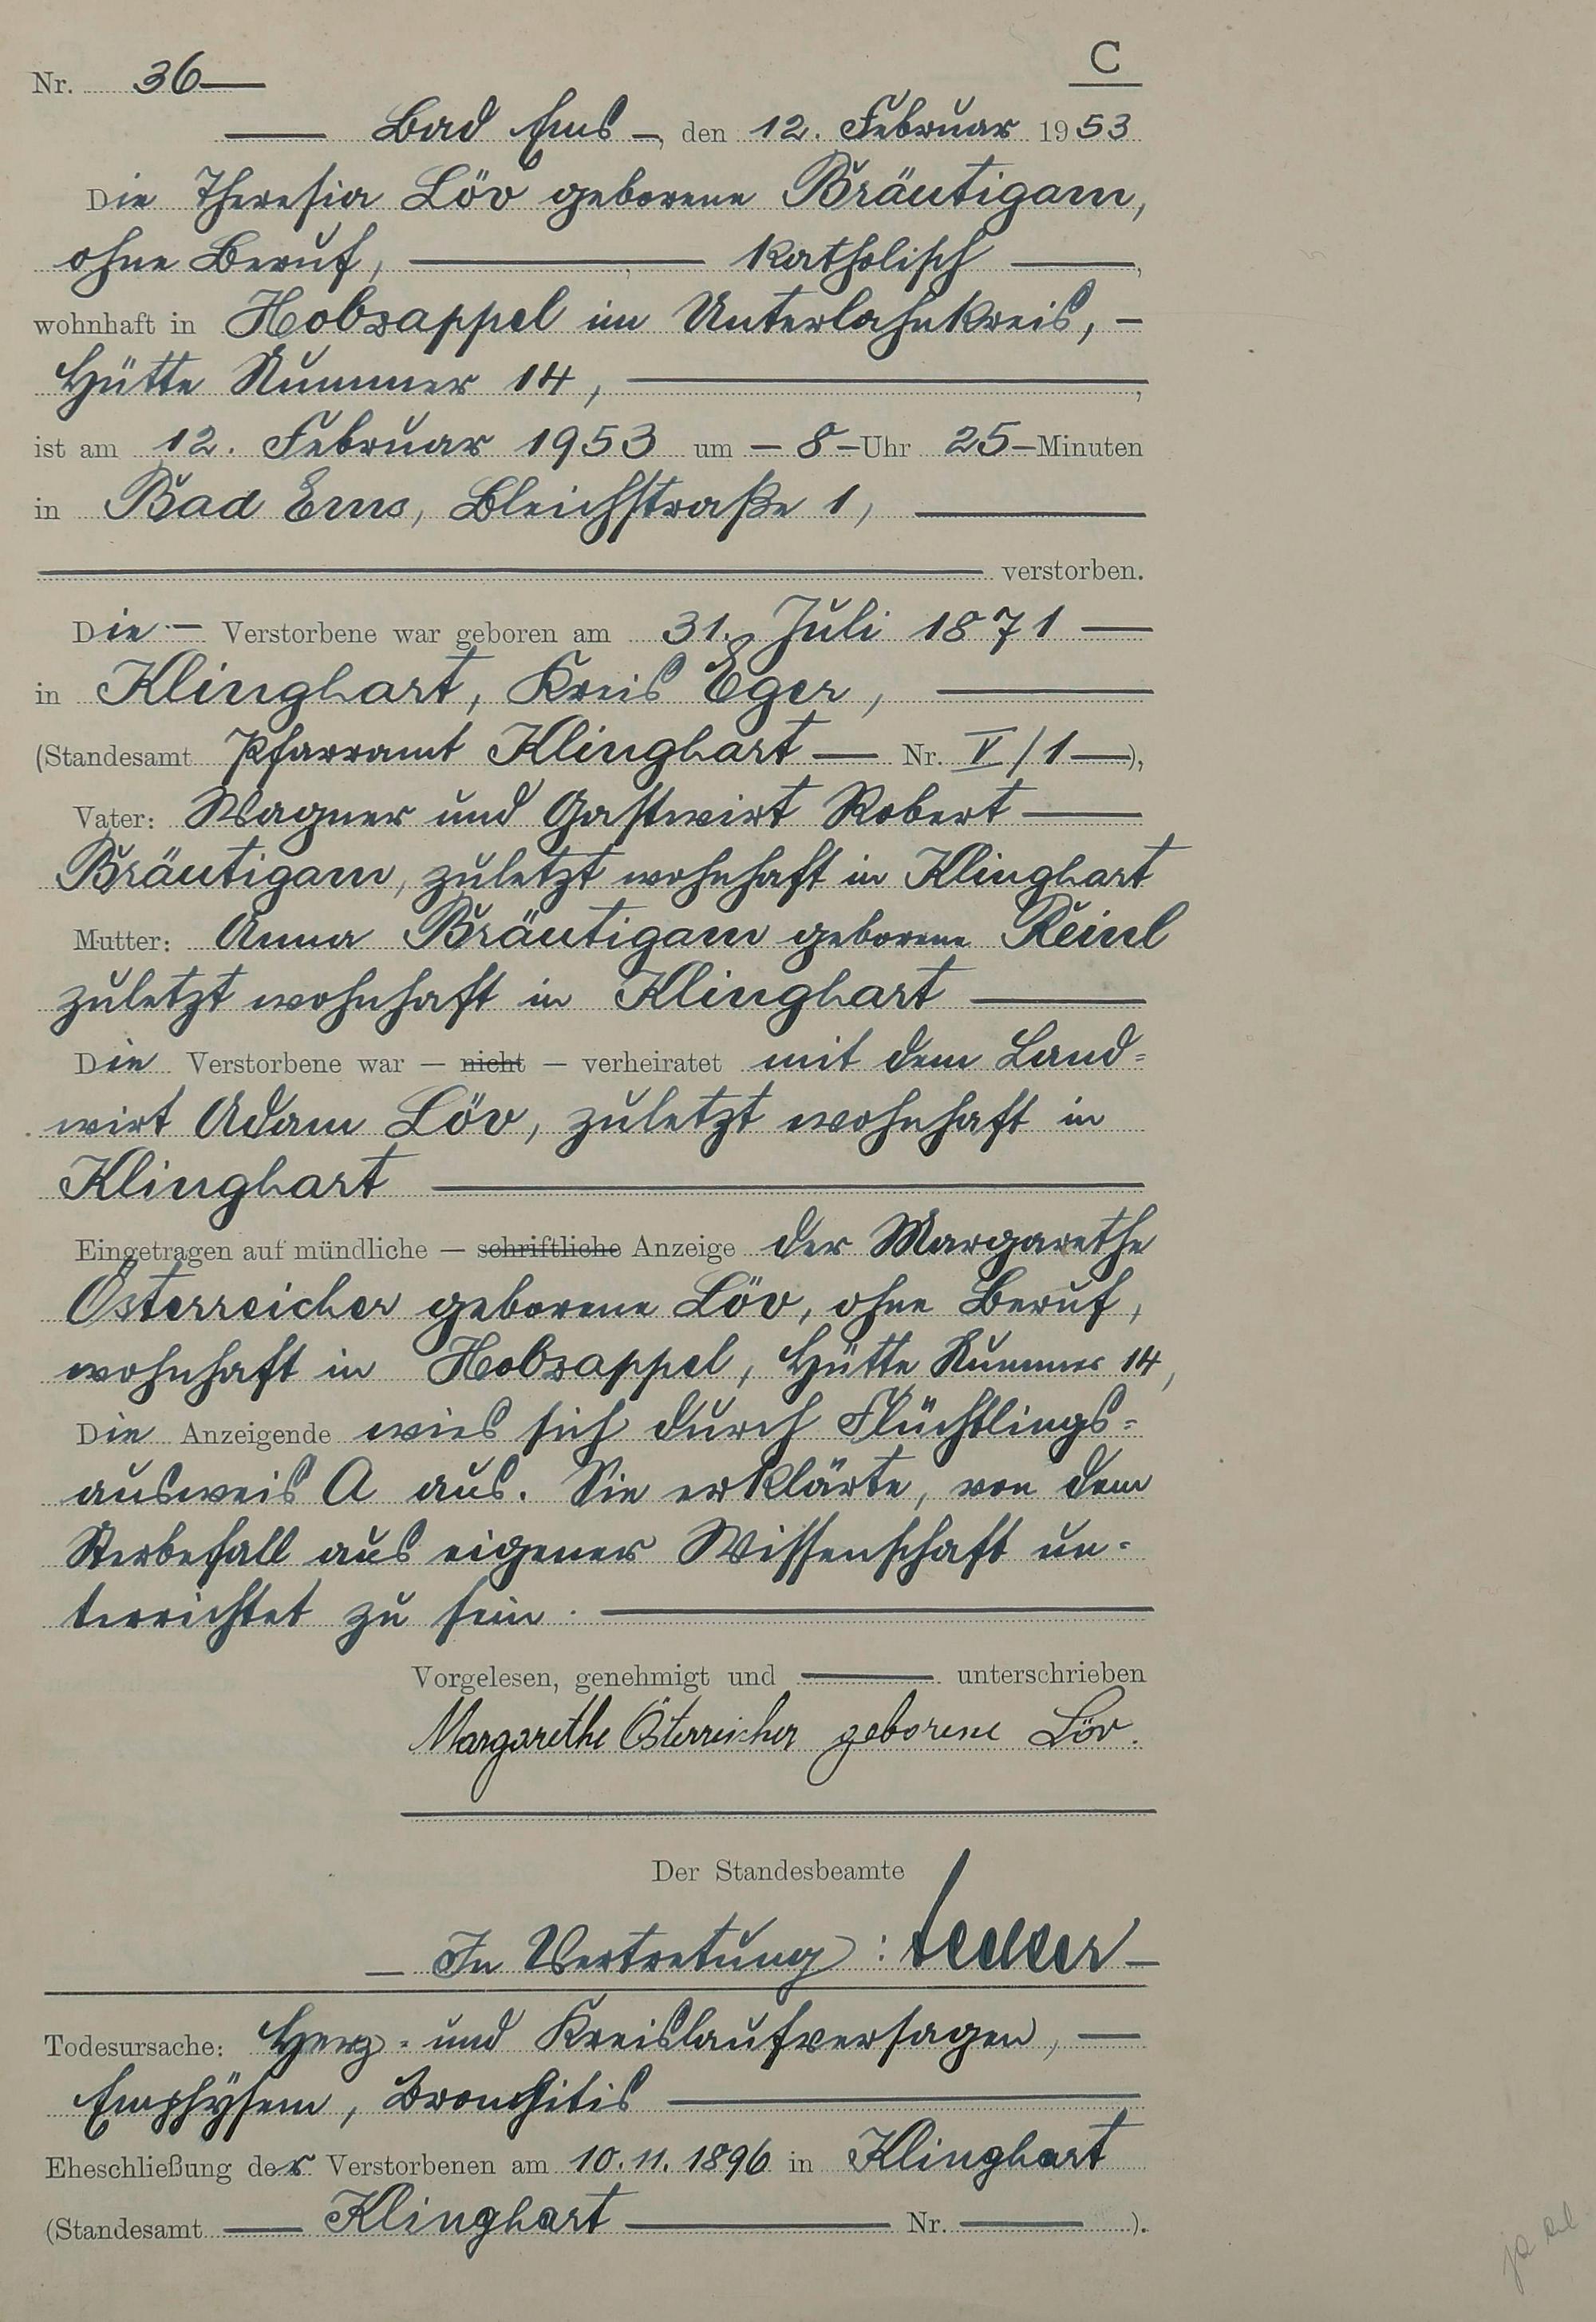 C
Nr. 36
Bad Ems, den 12. Februar 1953
Die Theresia Löv geborene Bräutigam,
ohne Beruf, katholisch,
wohnhaft in Holzappel im Unterlahnkreis,
Hütte Nummer 14,
ist am 12. Februar 1953 um 8 Uhr 25 Minuten
in Bad Ems, Bleichstraße 1,
verstorben.
Die Verstorbene war geboren am 31. Juli 1871
in Klinghart, Kreis Eger,
(Standesamt Pfarramt Klinghart Nr. V/1),
Vater: Wagner und Gastwirt Robert
Bräutigam, zuletzt wohnhaft in Klinghart
Mutter: Anna Bräutigam geborene Reinl
zuletzt wohnhaft in Klinghart
Die Verstorbene war — nicht — verheiratet mit dem Land=
wirt Adam Löv, zuletzt wohnhaft in
Klinghart
Eingetragen auf mündliche — schriftliche Anzeige der Margarethe
Österreicher geborene Löv, ohne Beruf,
wohnhaft in Holzappel, Hütte Nummer 14,
Die Anzeigende wies sich durch Flüchtlings=
ausweis A aus. Sie erklärte, von dem
Sterbefall aus eigener Wissenschaft un=
terrichtet zu sein.
Vorgelesen, genehmigt und unterschrieben
Margarethe Österreicher geborene Löv.
Der Standesbeamte
In Vertretung:
Todesursache: Herz= und Kreislaufversagen,
Emphysem, Bronchitis
Eheschließung der Verstorbenen am 10.11.1896 in Klinghart
(Standesamt Klinghart Nr. ).